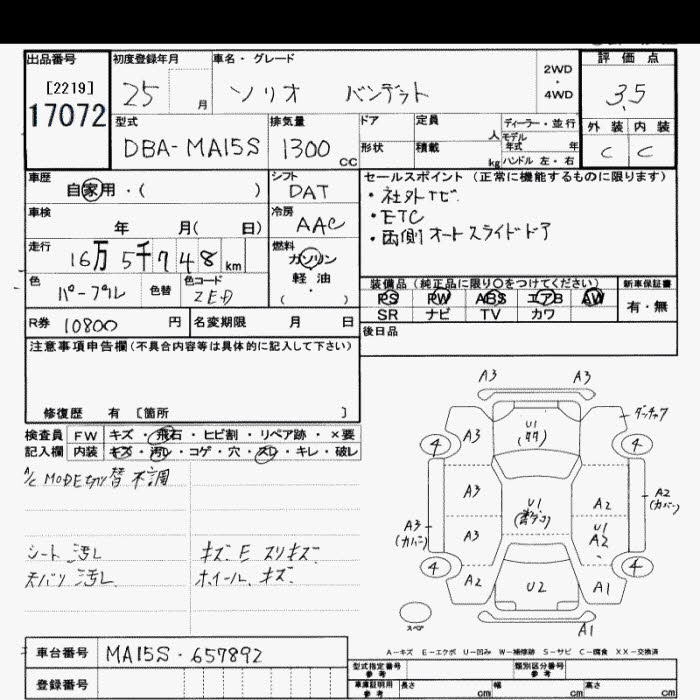 出品番号 初度登録年月 車名・グレード 2WD・4WD 評価点
[2219]
17072 25 月 ソリオ バンデット 3.5
型式 排気量 ドア 定員 人 ディーラー・並行 外装 内装
DBA-MA15S 1300 CC 形状 積載 kg モデル年式 年 ハンドル 左・右 C C
車歴 自家用・( ) シフト DAT
セールスポイント(正常に機能するものに限ります)
・社外ナビ
・ETC
・両側オートスライドドア
車検 年 月( 日) 冷房 AAC
走行 16万5千748km 燃料 ガソリン 軽油 ・( )
色 パープル 色替 色コード ZED
装備品(純正品に限り○をつけてください) 新車保証書
PS PW ABS エアB AW 有・無
SR ナビ TV カワ
R券 10800 円 名変期限 月 日
後日品
注意事項申告欄(不具合内容等は具体的に記入して下さい)
修復歴 有 [箇所 ]
検査員 FW キズ・飛石・ヒビ割・リペア跡・×要
記入欄 内装 キズ・汚レ・コゲ・穴・スレ・キレ・破レ
A/C MODE切り替 不調
シート 汚レ キズ. E スリキズ.
天バリ 汚レ ホイール. キズ.
A3 A3
A3 U1
4 4
A3 U1 A2
A3 (カバー) A2 (カバー)
A3 U1 A2
4 4
A2 U2 A1
スペア A1
A-キズ E-エクボ U-凹み W-補修跡 S-サビ C-腐食 XX-交換済
車台番号 MA15S-657892
登録番号
型式指定番号 参考 類別区分番号 参考
車庫証明用 参考 長さ cm 幅 cm 高さ cm